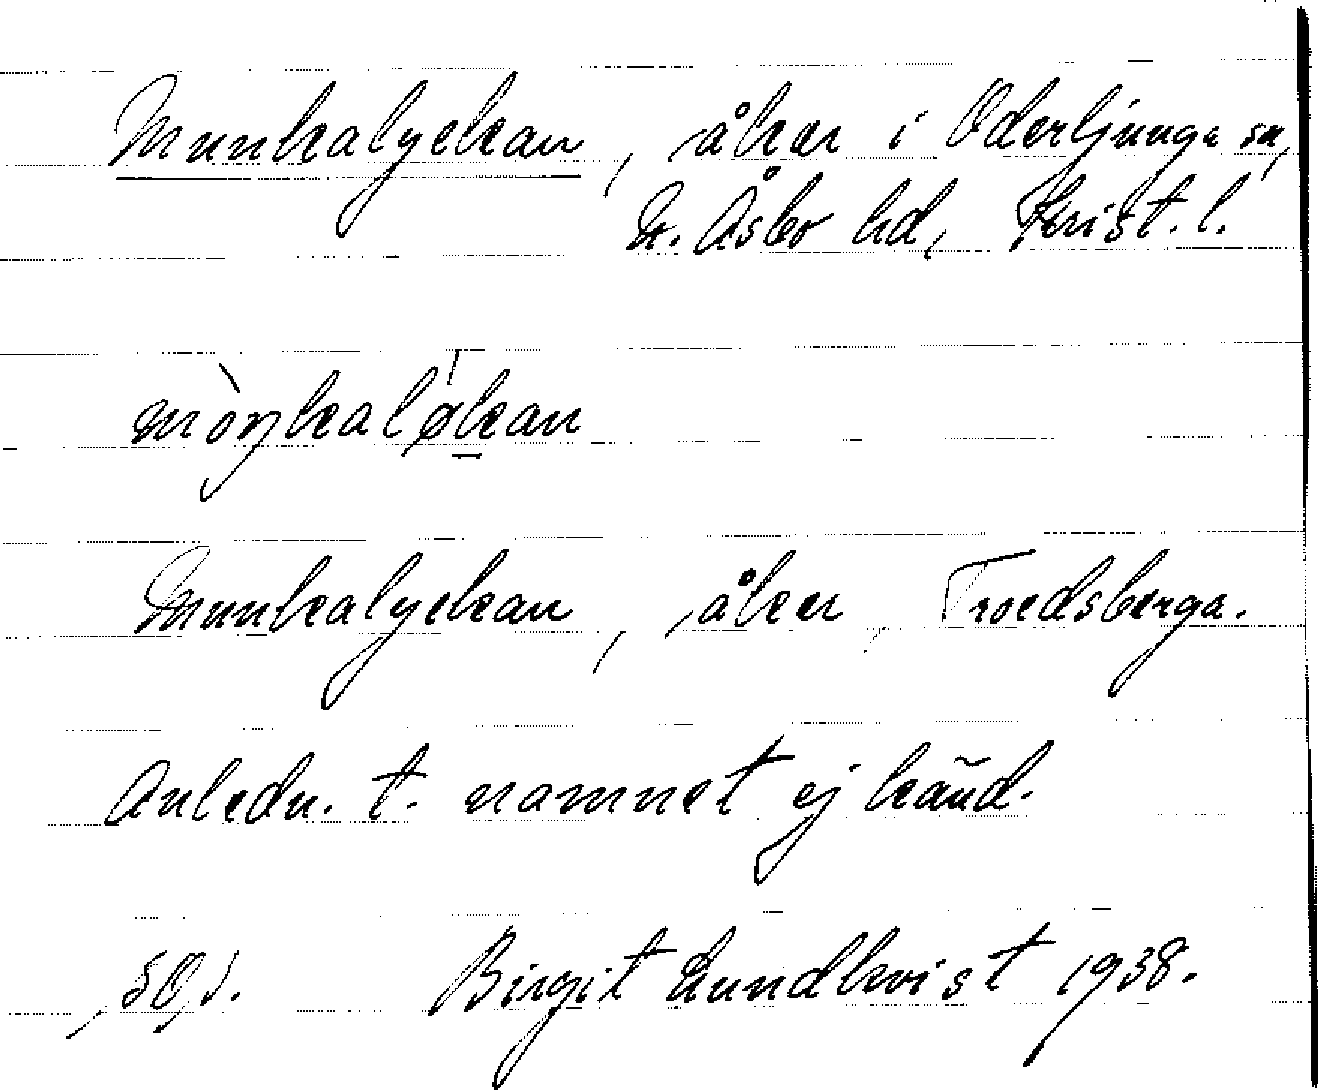 Munkalyckan, åker i Oderljunga sn,
N. Åsbo hd, Krist. l.
mòŋkaløkan
Munkalyckan, åker, Troedsberga.
Anledn. t. namnet ej känd.
Birgit Lundkvist 1938.